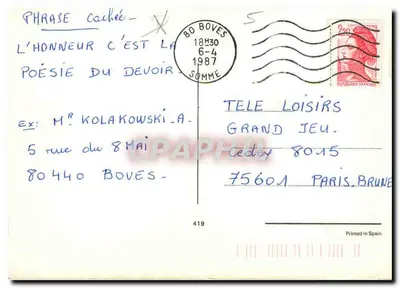 PHRASE Cachée-
L'HONNEUR C'EST LA
POÉSIE DU DEVOIR-
Ex: Mr KOLAKOWSKI-A-
5 rue du 8 MAI
80440 BOVES-
80 BOVES
18H30
6-4
1987
SOMME
5
2,20
TELE LOISIRS
GRAND JEU-
Cedex 8015
75601 PARIS-BRUNE
419
Printed in Spain